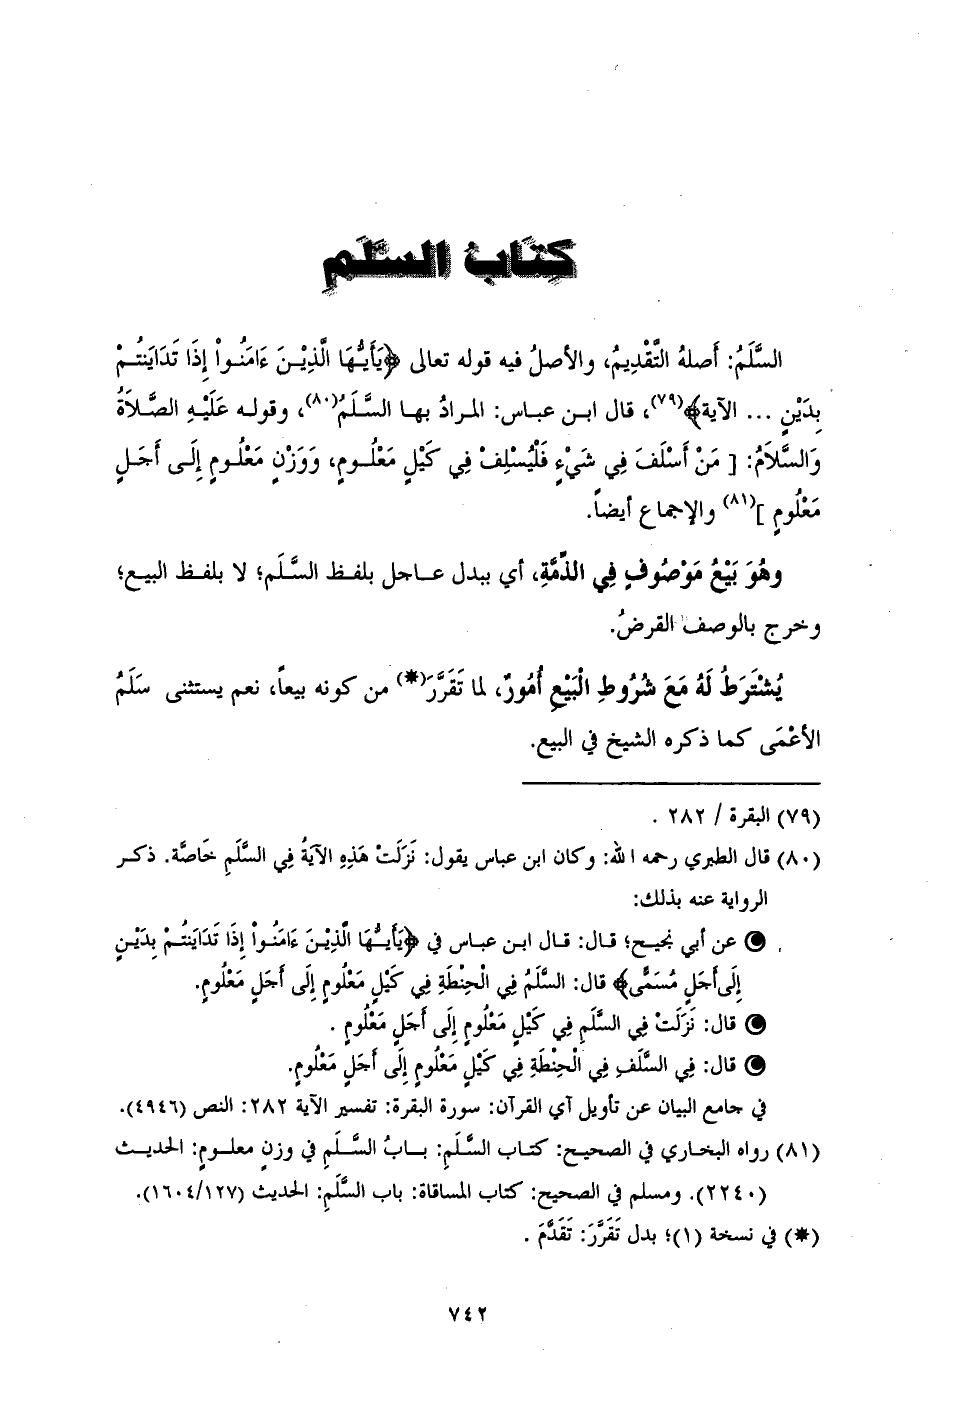 كِتَابُ السَّلَمِ
السَّلَمُ: أَصلهُ التَّقْدِيمُ، والأصلُ فيه قوله تعالى ﴿يَأَيُّهَا الَّذِيْنَ ءَامَنُواْ إِذَا تَدَايَنتُمْ
بِدَيْنٍ ... الآية﴾(٧٩)، قال ابن عباس: المرادُ بها السَّلَمُ(٨٠)، وقوله عَلَيْهِ الصَّلاَةُ
وَالسَّلاَمُ: [ مَنْ أَسْلَفَ فِي شَيْءٍ فَلْيُسْلِفْ فِي كَيْلٍ مَعْلُومٍ، وَوَزْنٍ مَعْلُومٍ إِلَى أَجَلٍ
مَعْلُومٍ ](٨١) والإجماع أيضاً.
وهُوَ بَيْعُ مَوْصُوفٍ فِي الذِّمَّةِ، أي ببدل عاجل بلفظ السَّلَم؛ لا بلفظ البيع؛
وخرج بالوصف القرضُ.
يُشْتَرَطُ لَهُ مَعَ شُرُوطِ الْبَيْعِ أُمُورٌ، لما تَقَرَّرَ(*) من كونه بيعاً، نعم يستثنى سَلَمُ
الأعْمَى كما ذكره الشيخ في البيع.
(٧٩) البقرة / ٢٨٢ .
(٨٠) قال الطبري رحمه الله: وكان ابن عباس يقول: نَزَلَتْ هَذِهِ الآيَةُ فِي السَّلَمِ خَاصَّة. ذكر
الرواية عنه بذلك:
عن أبي نجيح؛ قال: قال ابن عباس في ﴿يَأَيُّهَا الَّذِيْنَ ءَامَنُواْ إِذَا تَدَايَنتُمْ بِدَيْنٍ
إِلَى أَجَلٍ مُسَمًّى﴾ قال: السَّلَمُ فِي الْحِنْطَةِ فِي كَيْلٍ مَعْلُومٍ إِلَى أَجَلٍ مَعْلُومٍ.
قال: نَزَلَتْ فِي السَّلَمِ فِي كَيْلٍ مَعْلُومٍ إِلَى أَجَلٍ مَعْلُومٍ .
قال: فِي السَّلَفِ فِي الْحِنْطَةِ فِي كَيْلٍ مَعْلُومٍ إِلَى أَجَلٍ مَعْلُومٍ.
في جامع البيان عن تأويل آي القرآن: سورة البقرة: تفسير الآية ٢٨٢: النص (٤٩٤٦).
(٨١) رواه البخاري في الصحيح: كتاب السَّلَمِ: بابُ السَّلَمِ في وزنٍ معلومٍ: الحديث
(٢٢٤٠). ومسلم في الصحيح: كتاب المساقاة: باب السَّلَمِ: الحديث (١٦٠٤/١٢٧).
(*) في نسخة (١)؛ بدل تَقَرَّرَ: تَقَدَّمَ .
٧٤٢